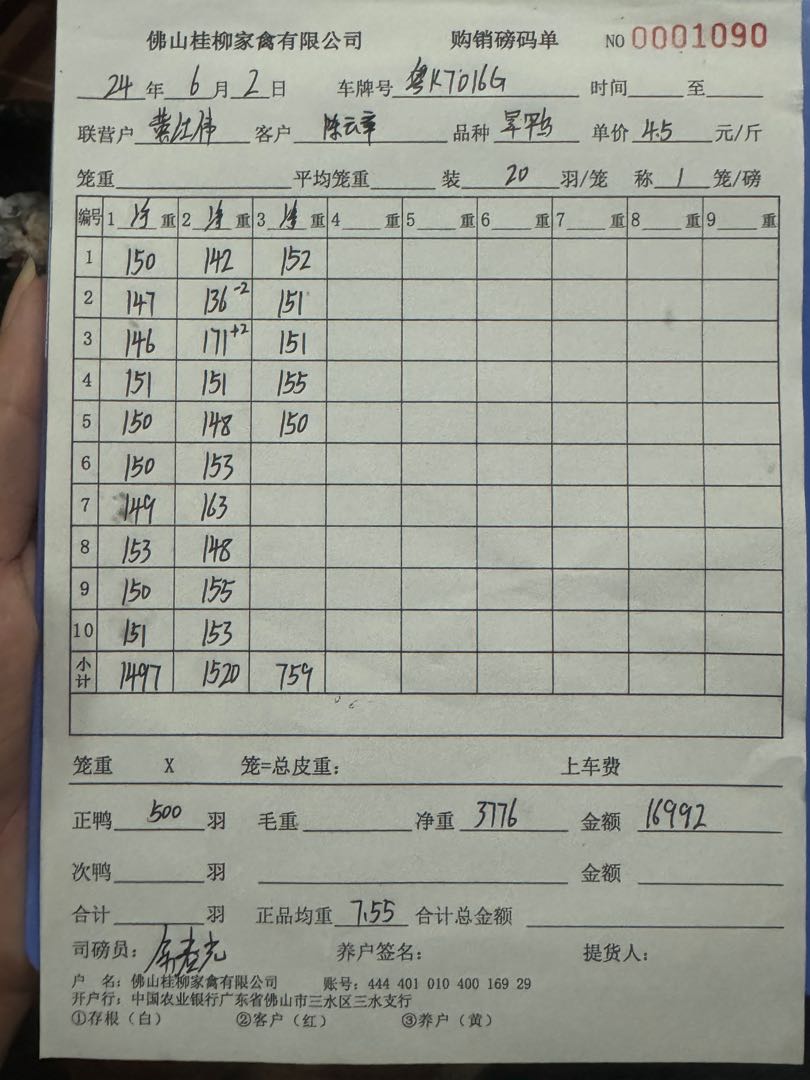 佛山桂柳家禽有限公司 购销磅码单 NO 0001090
24 年 6 月 2 日 车牌号 粤K7016G 时间 至
联营户 黄仕伟 客户 陈云章 品种 旱鸭 单价 4.5 元/斤
笼重 平均笼重 装 20 羽/笼 称 1 笼/磅
编号 1 净 重 2 净 重 3 净 重 4 重 5 重 6 重 7 重 8 重 9 重
1 150 142 152
2 147 136-2 151
3 146 171+2 151
4 151 151 155
5 150 148 150
6 150 153
7 149 163
8 153 148
9 150 155
10 151 153
小计 1497 1520 759
笼重 X 笼=总皮重: 上车费
正鸭 500 羽 毛重 净重 3776 金额 16992
次鸭 羽 金额
合计 羽 正品均重 7.55 合计总金额
司磅员: 养户签名: 提货人:
户 名: 佛山桂柳家禽有限公司 账号: 444 401 010 400 169 29
开户行: 中国农业银行广东省佛山市三水区三水支行
①存根（白） ②客户（红） ③养户（黄）